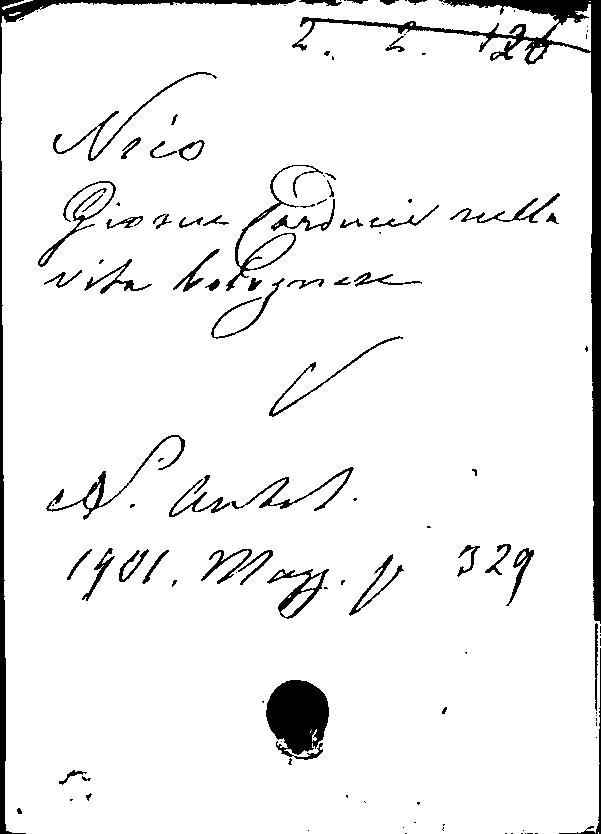 2. 2. 126
Neio
Giosue Carducci nella
vita bolognese
V
N. Antol.
1901. Magg. p 329